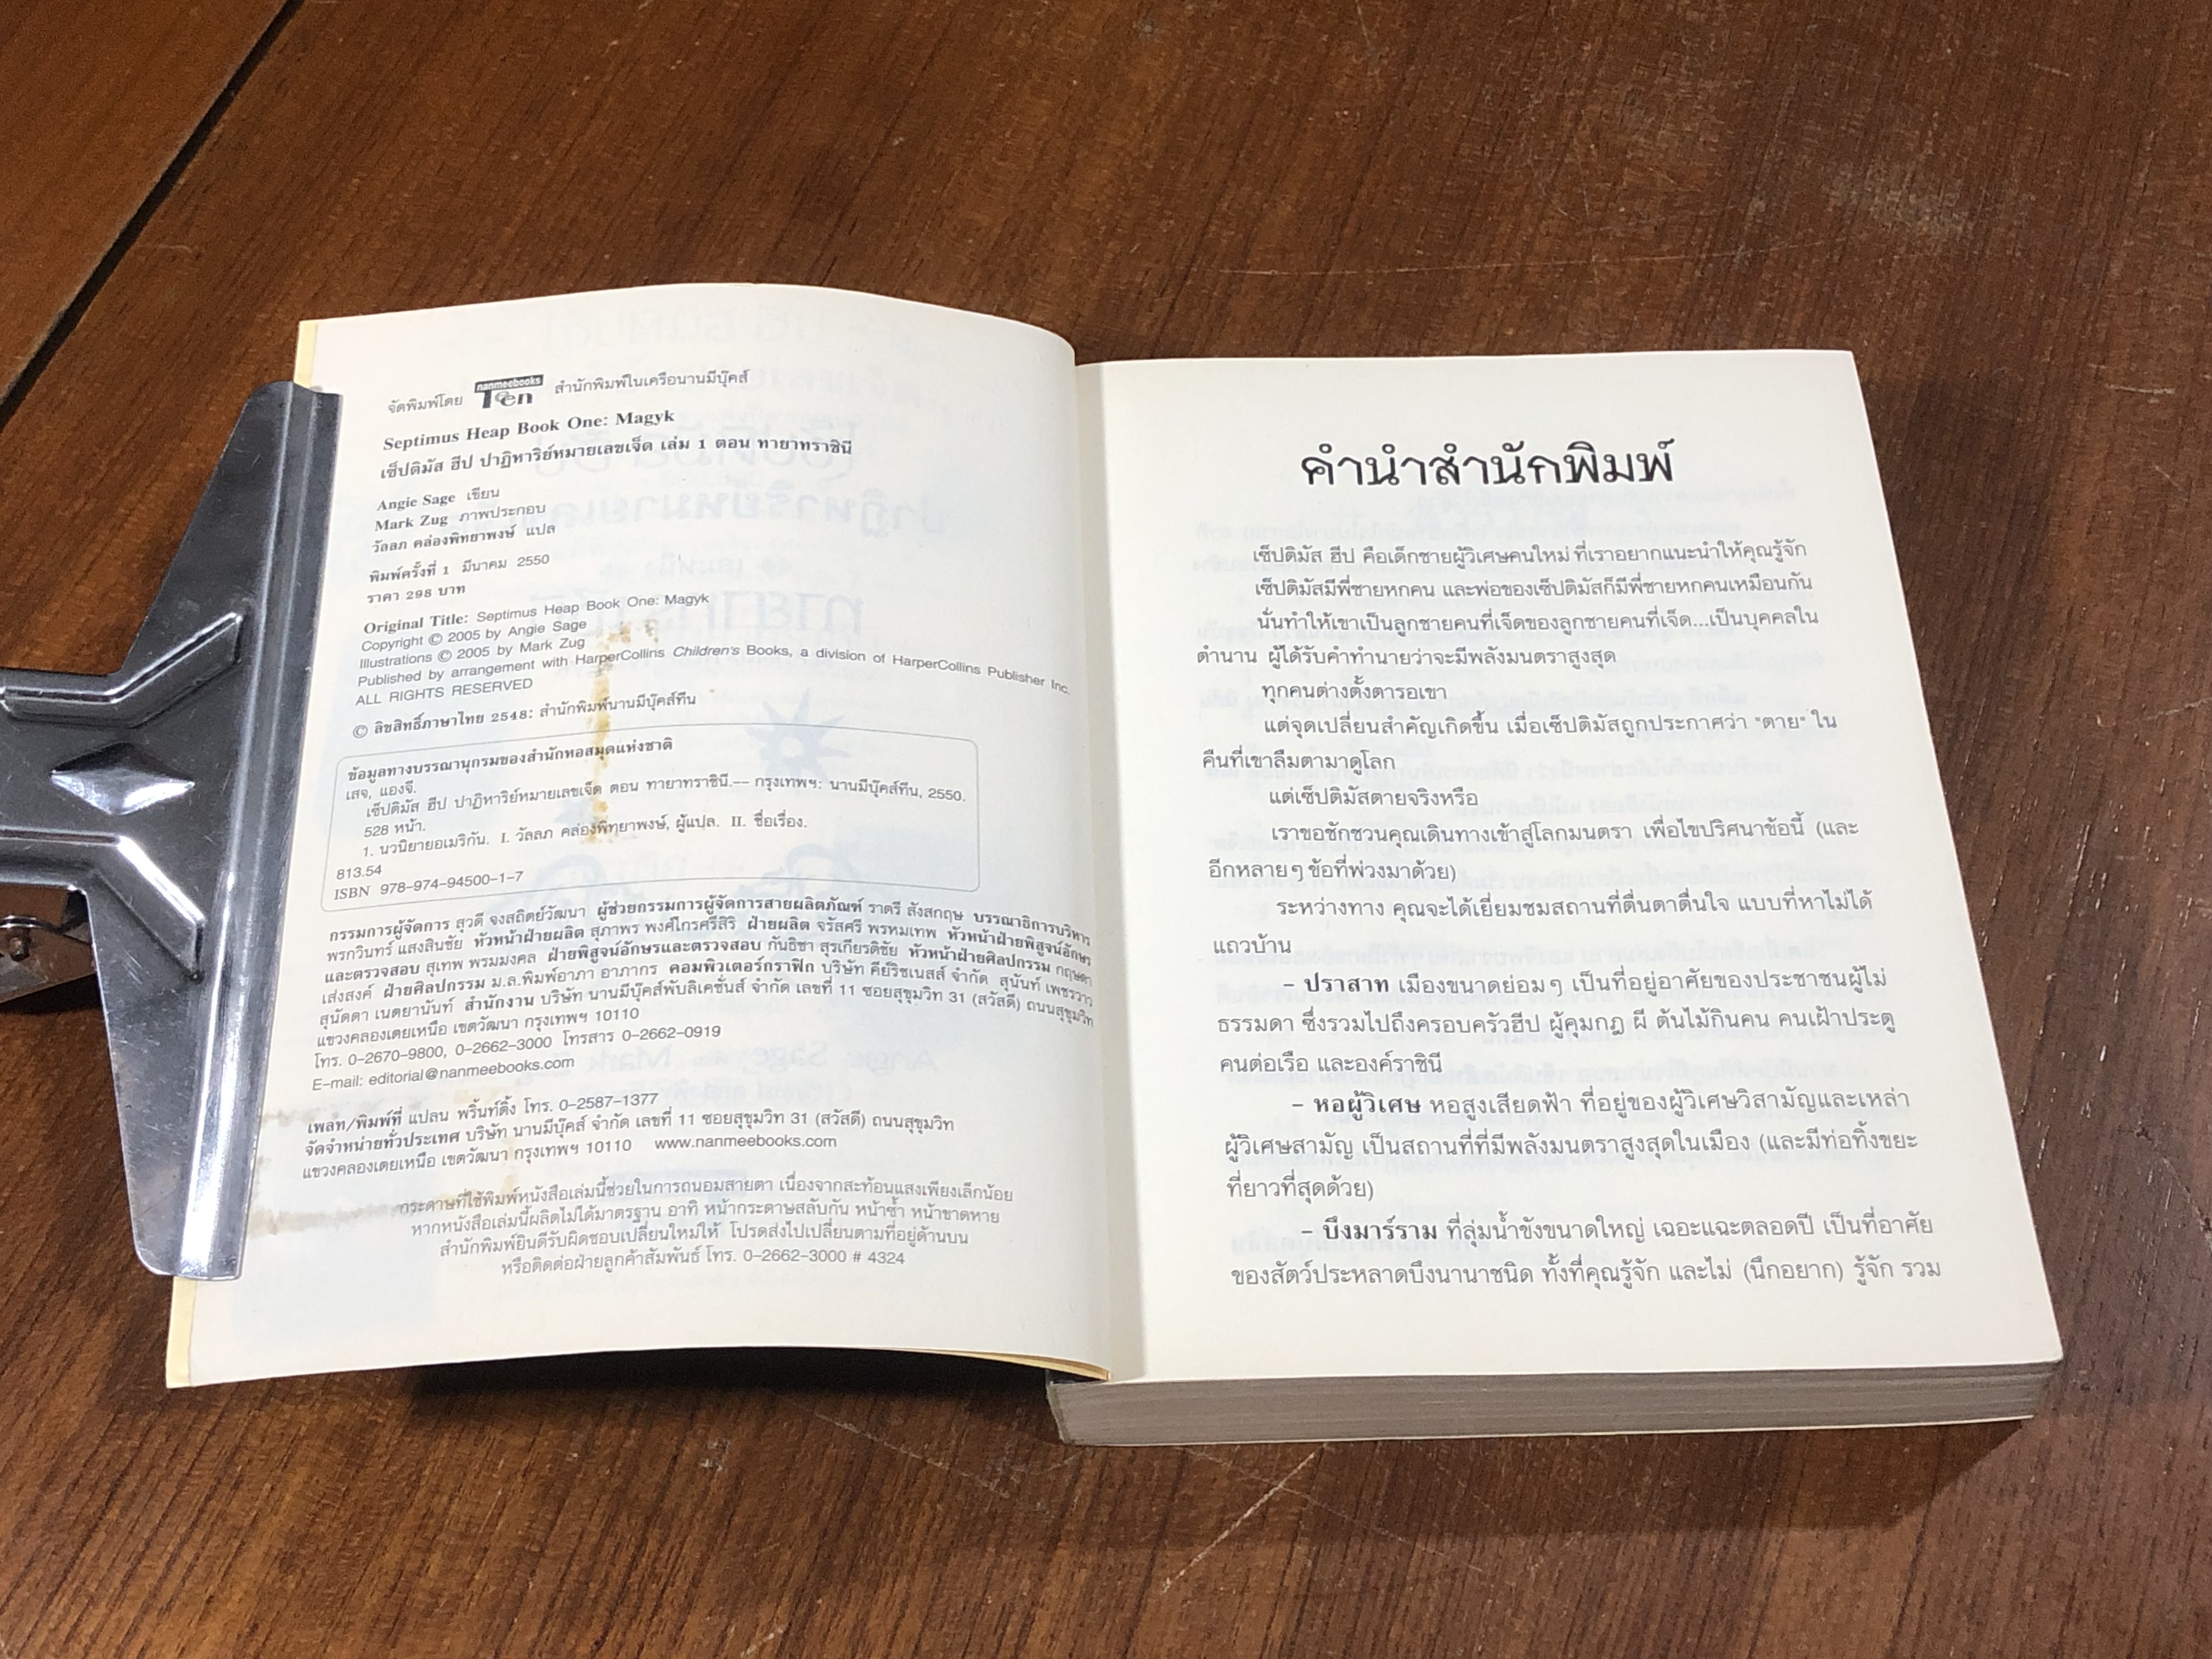 จัดพิมพ์โดย nanmeebooks Teen สำนักพิมพ์ในเครือนานมีบุ๊คส์
Septimus Heap Book One: Magyk
เซ็ปติมัส ฮีป ปาฏิหาริย์หมายเลขเจ็ด เล่ม 1 ตอน ทายาทราชินี
Angie Sage เขียน
Mark Zug ภาพประกอบ
วัลลภ คล่องพิทยาพงษ์ แปล
พิมพ์ครั้งที่ 1 มีนาคม 2550
ราคา 298 บาท
Original Title: Septimus Heap Book One: Magyk
Copyright © 2005 by Angie Sage
Illustrations © 2005 by Mark Zug
Published by arrangement with HarperCollins Children's Books, a division of HarperCollins Publisher Inc.
ALL RIGHTS RESERVED
© ลิขสิทธิ์ภาษาไทย 2548: สำนักพิมพ์นานมีบุ๊คส์ทีน
ข้อมูลทางบรรณานุกรมของสำนักหอสมุดแห่งชาติ
เสจ, แองจี.
เซ็ปติมัส ฮีป ปาฏิหาริย์หมายเลขเจ็ด ตอน ทายาทราชินี.-- กรุงเทพฯ: นานมีบุ๊คส์ทีน, 2550.
528 หน้า.
1. นวนิยายอเมริกัน. I. วัลลภ คล่องพิทยาพงษ์, ผู้แปล. II. ชื่อเรื่อง.
813.54
ISBN 978-974-94500-1-7
กรรมการผู้จัดการ สุวดี จงสถิตย์วัฒนา ผู้ช่วยกรรมการผู้จัดการสายผลิตภัณฑ์ ราตรี สังสกฤษ บรรณาธิการบริหาร
พรกวินทร์ แสงสินชัย หัวหน้าฝ่ายผลิต สุภาพร พงศ์ไกรศรีสิริ ฝ่ายผลิต จรัสศรี พรหมเทพ หัวหน้าฝ่ายพิสูจน์อักษร
และตรวจสอบ สุเทพ พรมมงคล ฝ่ายพิสูจน์อักษรและตรวจสอบ กันธิชา สุรเกียรติชัย หัวหน้าฝ่ายศิลปกรรม กฤษดา
เส่งสงค์ ฝ่ายศิลปกรรม ม.ล.พิมพ์อาภา อาภากร คอมพิวเตอร์กราฟิก บริษัท คีย์ริชเนสส์ จำกัด สุนันท์ เพชรวาว
สุนัดดา เนตยานันท์ สำนักงาน บริษัท นานมีบุ๊คส์พับลิเคชั่นส์ จำกัด เลขที่ 11 ซอยสุขุมวิท 31 (สวัสดี) ถนนสุขุมวิท
แขวงคลองเตยเหนือ เขตวัฒนา กรุงเทพฯ 10110
โทร. 0-2670-9800, 0-2662-3000 โทรสาร 0-2662-0919
E-mail: editorial@nanmeebooks.com
เพลท/พิมพ์ที่ แปลน พริ้นท์ติ้ง โทร. 0-2587-1377
จัดจำหน่ายทั่วประเทศ บริษัท นานมีบุ๊คส์ จำกัด เลขที่ 11 ซอยสุขุมวิท 31 (สวัสดี) ถนนสุขุมวิท
แขวงคลองเตยเหนือ เขตวัฒนา กรุงเทพฯ 10110 www.nanmeebooks.com
กระดาษที่ใช้พิมพ์หนังสือเล่มนี้ช่วยในการถนอมสายตา เนื่องจากสะท้อนแสงเพียงเล็กน้อย
หากหนังสือเล่มนี้ผลิตไม่ได้มาตรฐาน อาทิ หน้ากระดาษสลับกัน หน้าซ้ำ หน้าขาดหาย
สำนักพิมพ์ยินดีรับผิดชอบเปลี่ยนใหม่ให้ โปรดส่งไปเปลี่ยนตามที่อยู่ด้านบน
หรือติดต่อฝ่ายลูกค้าสัมพันธ์ โทร. 0-2662-3000 # 4324
คำนำสำนักพิมพ์
เซ็ปติมัส ฮีป คือเด็กชายผู้วิเศษคนใหม่ ที่เราอยากแนะนำให้คุณรู้จัก
เซ็ปติมัสมีพี่ชายหกคน และพ่อของเซ็ปติมัสก็มีพี่ชายหกคนเหมือนกัน
นั่นทำให้เขาเป็นลูกชายคนที่เจ็ดของลูกชายคนที่เจ็ด...เป็นบุคคลใน
ตำนาน ผู้ได้รับคำทำนายว่าจะมีพลังมนตราสูงสุด
ทุกคนต่างตั้งตารอเขา
แต่จุดเปลี่ยนสำคัญเกิดขึ้น เมื่อเซ็ปติมัสถูกประกาศว่า "ตาย" ใน
คืนที่เขาลืมตามาดูโลก
แต่เซ็ปติมัสตายจริงหรือ
เราขอชักชวนคุณเดินทางเข้าสู่โลกมนตรา เพื่อไขปริศนาข้อนี้ (และ
อีกหลายๆ ข้อที่พ่วงมาด้วย)
ระหว่างทาง คุณจะได้เยี่ยมชมสถานที่ตื่นตาตื่นใจ แบบที่หาไม่ได้
แถวบ้าน
– ปราสาท เมืองขนาดย่อมๆ เป็นที่อยู่อาศัยของประชาชนผู้ไม่
ธรรมดา ซึ่งรวมไปถึงครอบครัวฮีป ผู้คุมกฎ ผี ต้นไม้กินคน คนเฝ้าประตู
คนต่อเรือ และองค์ราชินี
– หอผู้วิเศษ หอสูงเสียดฟ้า ที่อยู่ของผู้วิเศษวิสามัญและเหล่า
ผู้วิเศษสามัญ เป็นสถานที่ที่มีพลังมนตราสูงสุดในเมือง (และมีท่อทิ้งขยะ
ที่ยาวที่สุดด้วย)
– บึงมาร์ราม ที่ลุ่มน้ำขังขนาดใหญ่ เฉอะแฉะตลอดปี เป็นที่อาศัย
ของสัตว์ประหลาดบึงนานาชนิด ทั้งที่คุณรู้จัก และไม่ (นึกอยาก) รู้จัก รวม